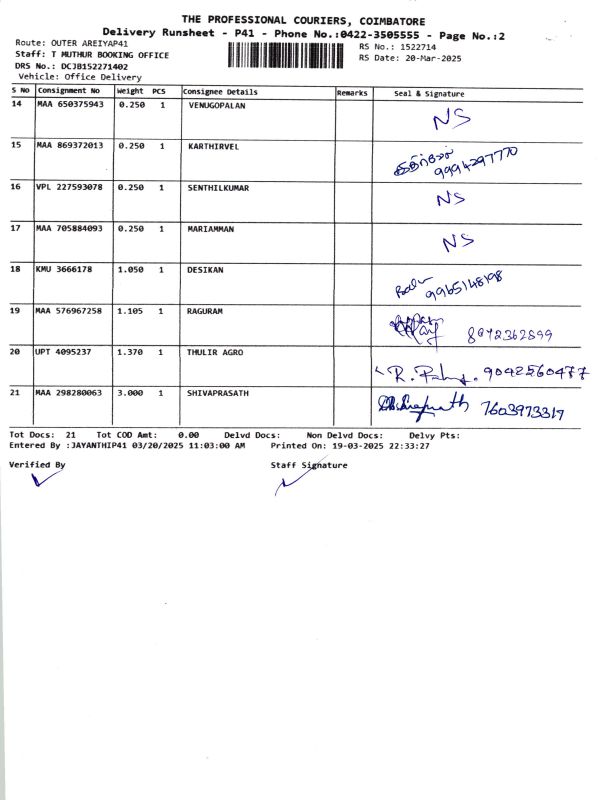 THE PROFESSIONAL COURIERS, COIMBATORE
Delivery Runsheet - P41 - Phone No.:0422-3505555 - Page No.:2
Route: OUTER AREIYAP41
RS No.: 1522714
Staff: T MUTHUR BOOKING OFFICE
RS Date: 20-Mar-2025
DRS No.: DCJB152271402
Vehicle: Office Delivery
S No Consignment No Weight PCS Consignee Details Remarks Seal & Signature
14 MAA 650375943 0.250 1 VENUGOPALAN NS
15 MAA 869372013 0.250 1 KARTHIRVEL 9994297770
16 VPL 227593078 0.250 1 SENTHILKUMAR NS
17 MAA 705884093 0.250 1 MARIAMMAN NS
18 KMU 3666178 1.050 1 DESIKAN 9965148198
19 MAA 576967258 1.105 1 RAGURAM
20 UPT 4095237 1.370 1 THULIR AGRO 9042560477
21 MAA 298280063 3.000 1 SHIVAPRASATH 7603973317
Tot Docs: 21 Tot COD Amt: 0.00 Delvd Docs: Non Delvd Docs: Delvy Pts:
Entered By :JAYANTHIP41 03/20/2025 11:03:00 AM Printed On: 19-03-2025 22:33:27
Verified By Staff Signature